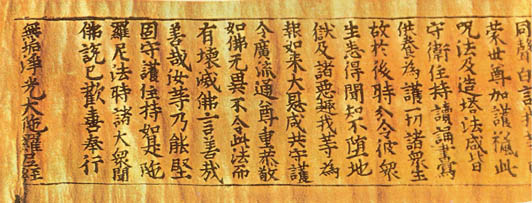 蒙世尊加護授此
呪法及造塔法咸皆
守衛住持讀誦書寫
供養為護一切諸衆生
故於後時分令彼衆
生悉得聞知不墮地
獄及諸惡趣我等為
報如来大恩咸共守護
令廣流通尊重恭敬
如佛無異不令此法而
有壞滅佛言善哉
善哉汝等乃能堅
固守護住持如是陁
羅尼法時諸大衆聞
佛說已歡喜奉行
無垢淨光大陁羅尼經